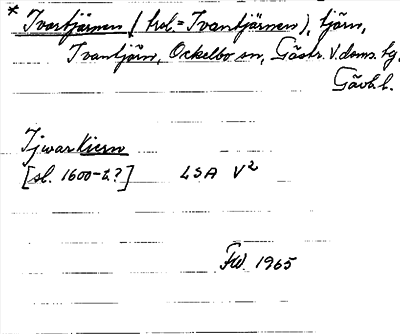 * Ivartjärnen (trol. = Ivantjärnen), tjärn,
Ivantjärn, Ockelbo sn, Gästr. V. doms. tg,
Gävlb. l.
Tjwarkiern
[sl. 1600-t.?] LSA V²
FW. 1965